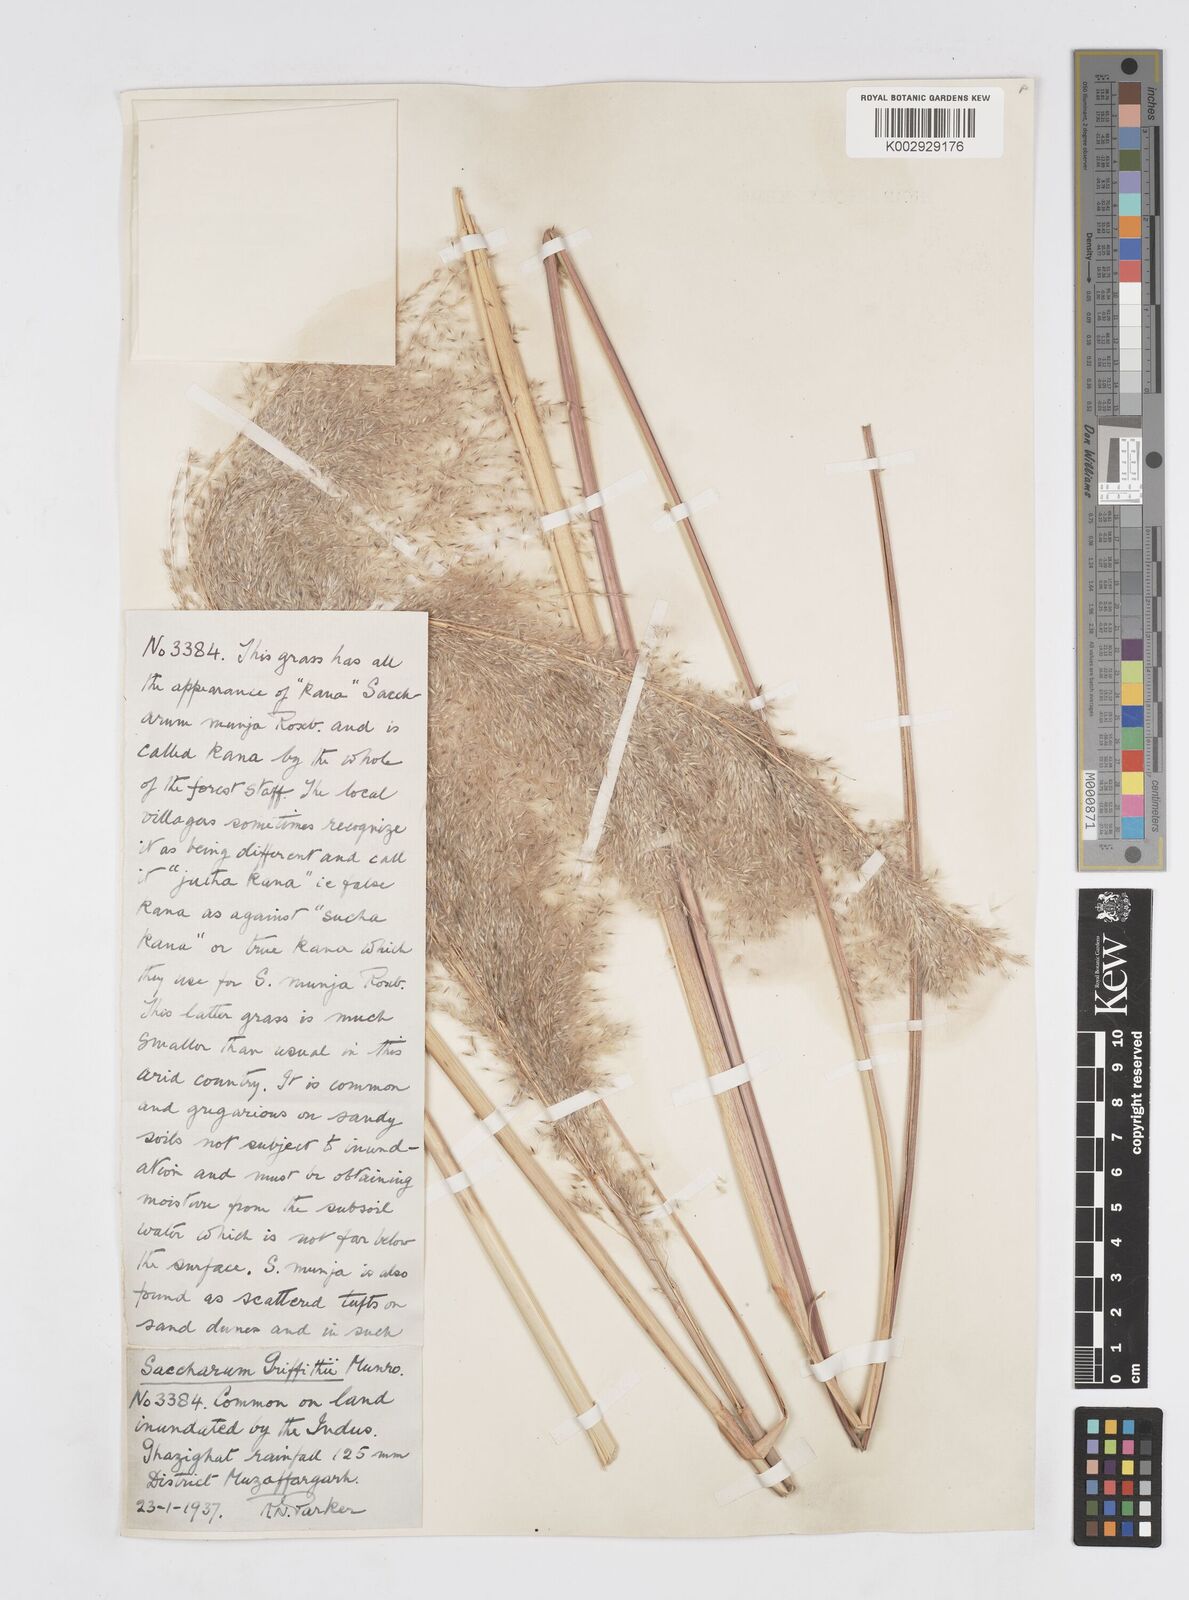 ROYAL BOTANIC GARDENS KEW
K002929176
No 3384. This grass has all
the appearance of "Kana" Sacch-
arum munja Roxb. and is
called Kana by the whole
of the forest staff. The local
villagers sometimes recognize
it as being different and call
it "jutha Kana" ie false
Kana as against "sucha
Kana" or true Kana which
they use for S. munja Roxb.
This latter grass is much
smaller than usual in this
arid country. It is common
and gregarious on sandy
soils not subject to inund-
ation and must be obtaining
moisture from the subsoil
water which is not far below
the surface. S. munja is also
found as scattered tufts on
sand dunes and in such
Saccharum Griffithii Munro.
No 3384. Common on land
inundated by the Indus.
Ghazighat rainfall 125 mm
District Muzaffargarh.
23-1-1937. R.N. Parker
inches
centimeters
Density
Don Williams
M000871
Kew
Royal Botanic Gardens
copyright reserved
0 1 2 3 4 5 6 7 8 9 10
cm